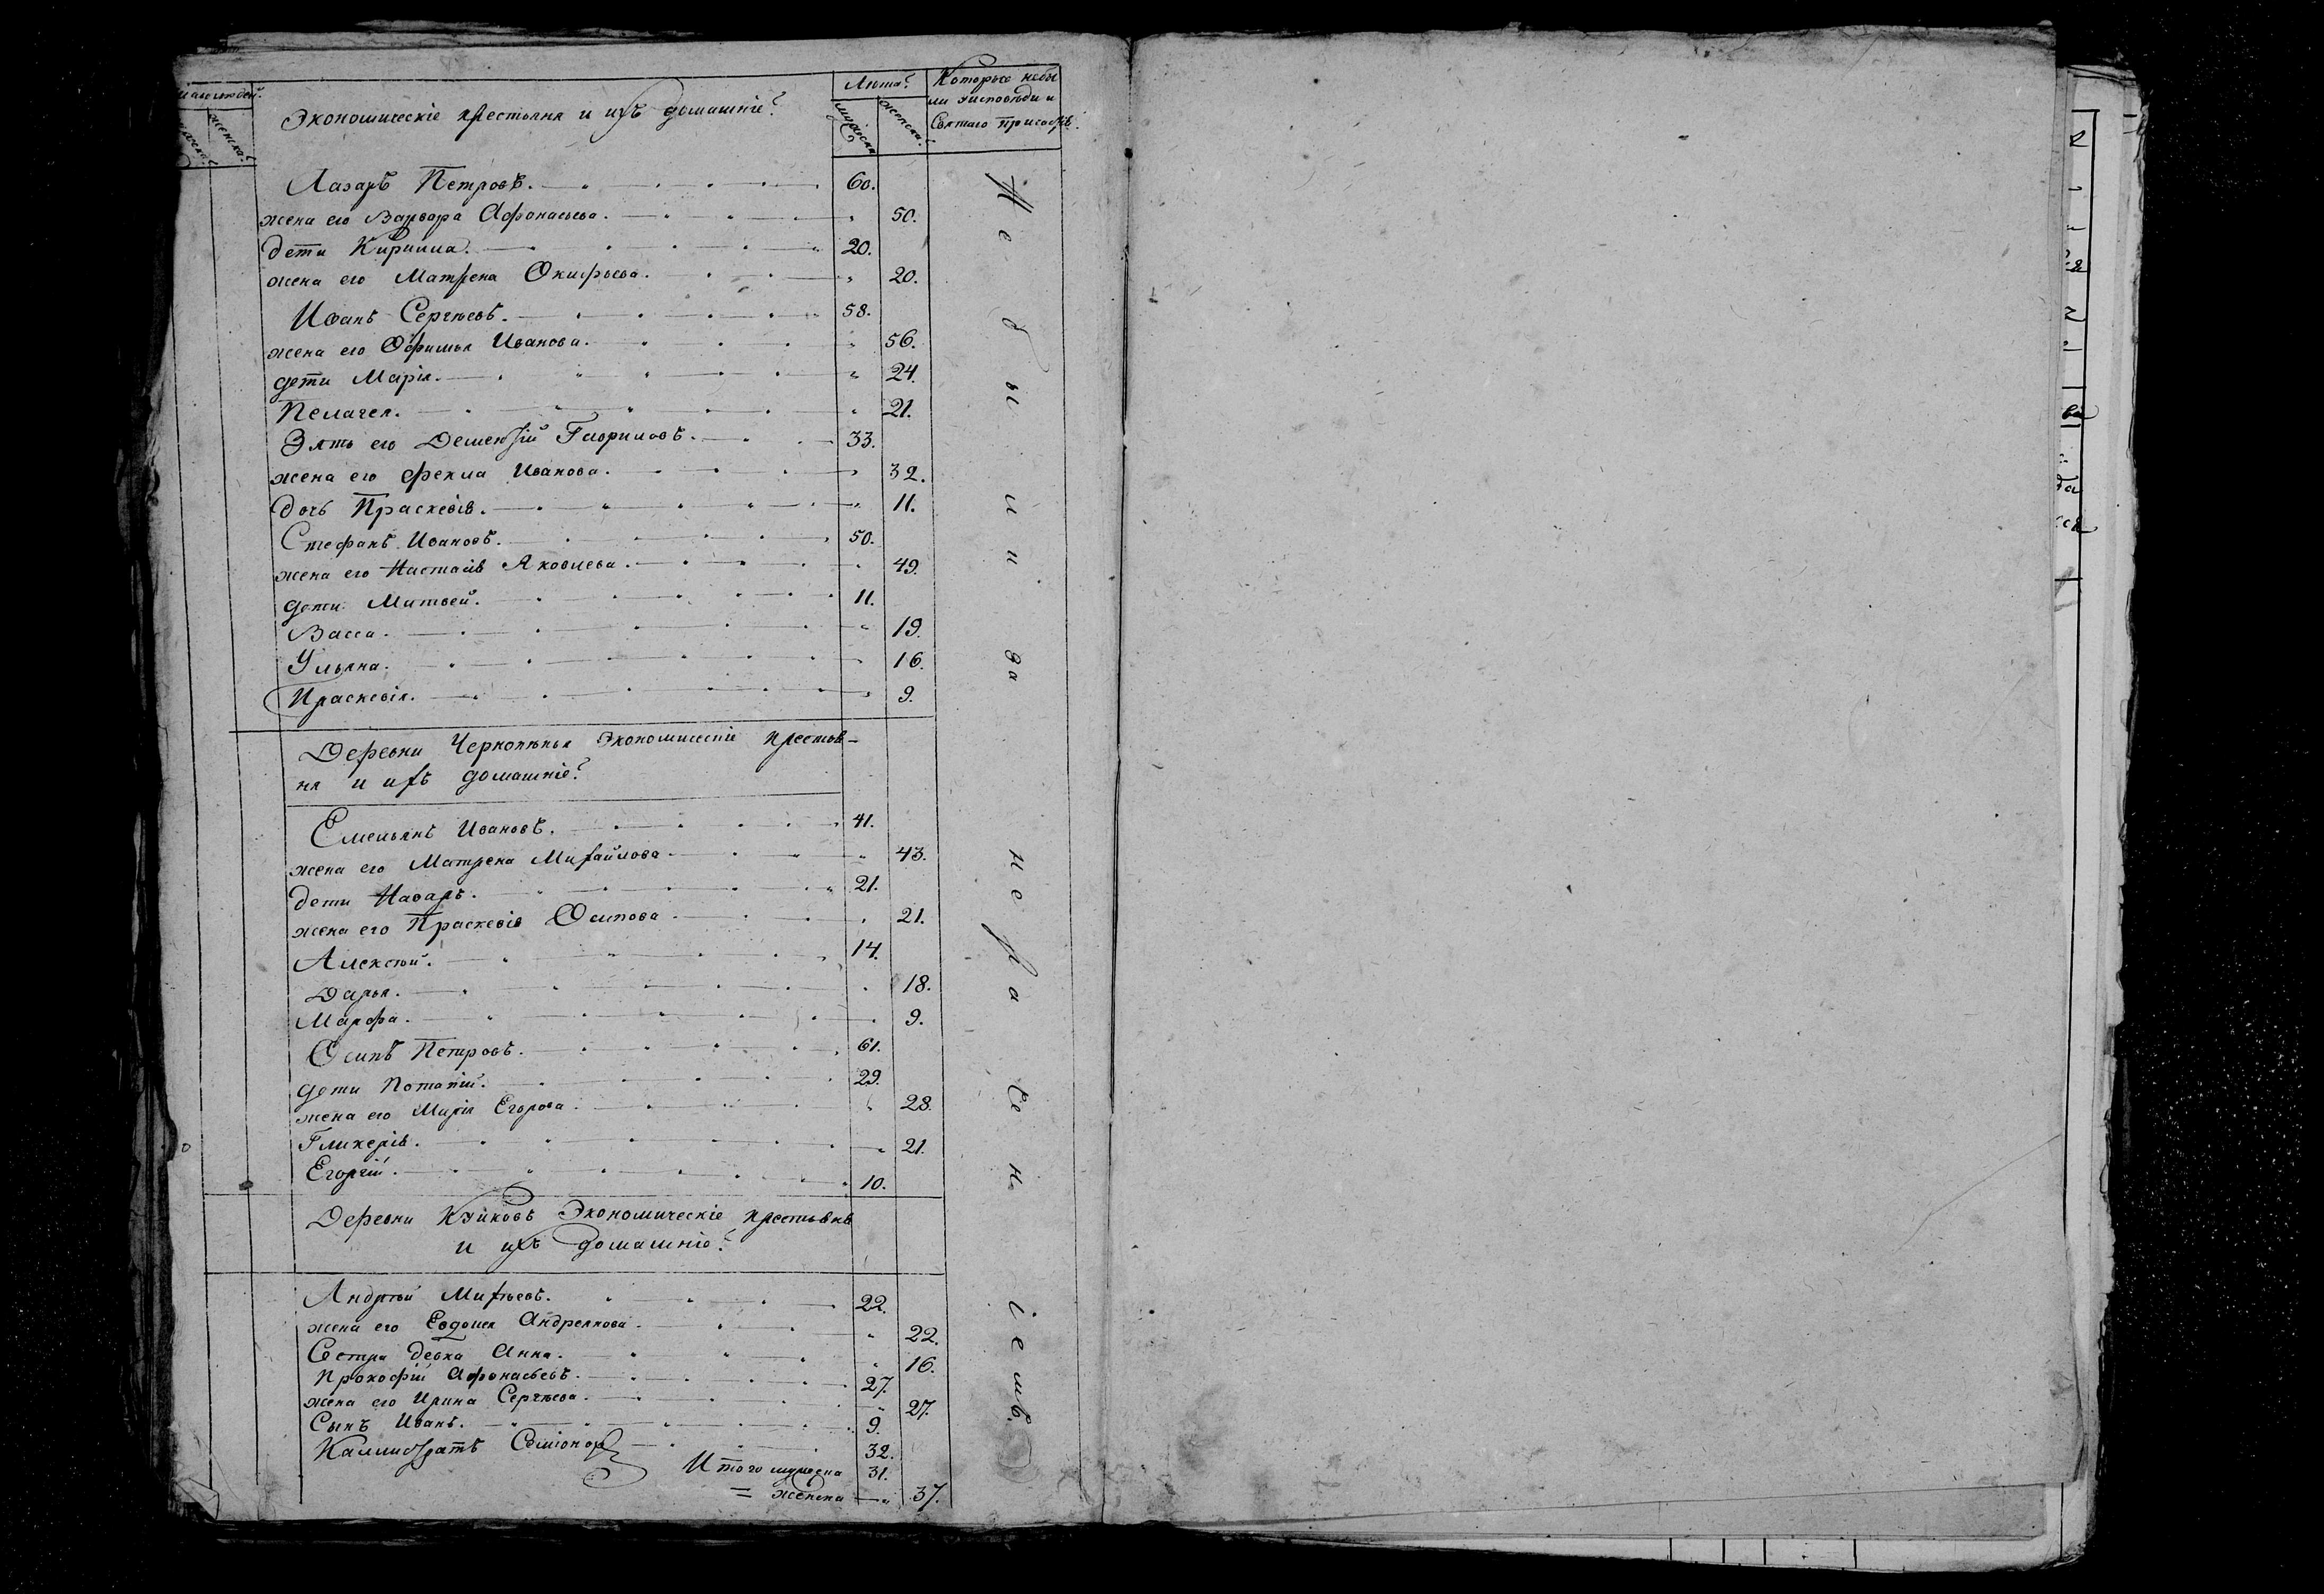 Экономическіе крестьяня и ихъ домашніе
Лѣта
Которые небы
ли уисповѣди и
Святаго причастія
мужска
женска
женска
Лазарь Петровъ. 60.
жена его Варвара Афонасьева. 50.
дети Кирилла. 20.
жена его Матрена Окифьева. 20.
Иванъ Сергѣевъ. 58.
жена его Офимья Иванова. 56.
дети Марія. 24.
Пелагея. 21.
Зять его Дементій Гавриловъ. 33.
жена его Фекла Иванова. 32.
дочь Праскевія. 11.
Стефанъ Ивановъ. 50.
жена его Настасія Яковлева. 49.
дети Матвей. 11.
Васса. 19.
Ульяна. 16.
Праскевія. 9.
Деревни Экономическіе крестья-
ня и ихъ домашніе
Емельянъ Ивановъ. 41.
жена его Матрена Михайлова 43.
дети Назаръ. 21.
жена его Праскевія Осипова 21.
Алексѣй. 14.
Дарья. 18.
Марфа. 9.
Осипъ Петровъ. 61.
дети Потапій. 29.
жена его Марія Егорова 28.
Гликерія. 21.
Егоргій. 10.
Деревни Куйковъ Экономическіе крестьяня
и ихъ домашніе
Андрѣй Михѣевъ. 22.
жена его Евдокея Андреянова 22.
Сестра девка Анна. 16.
Прокофій Афонасьевъ. 27.
жена его Ирина Сергѣева 27.
Сынъ Иванъ. 9.
Каллистратъ Семіоновъ 32.
Итого мужеска 31.
= женска 37.
Не были за нерасченіемъ.